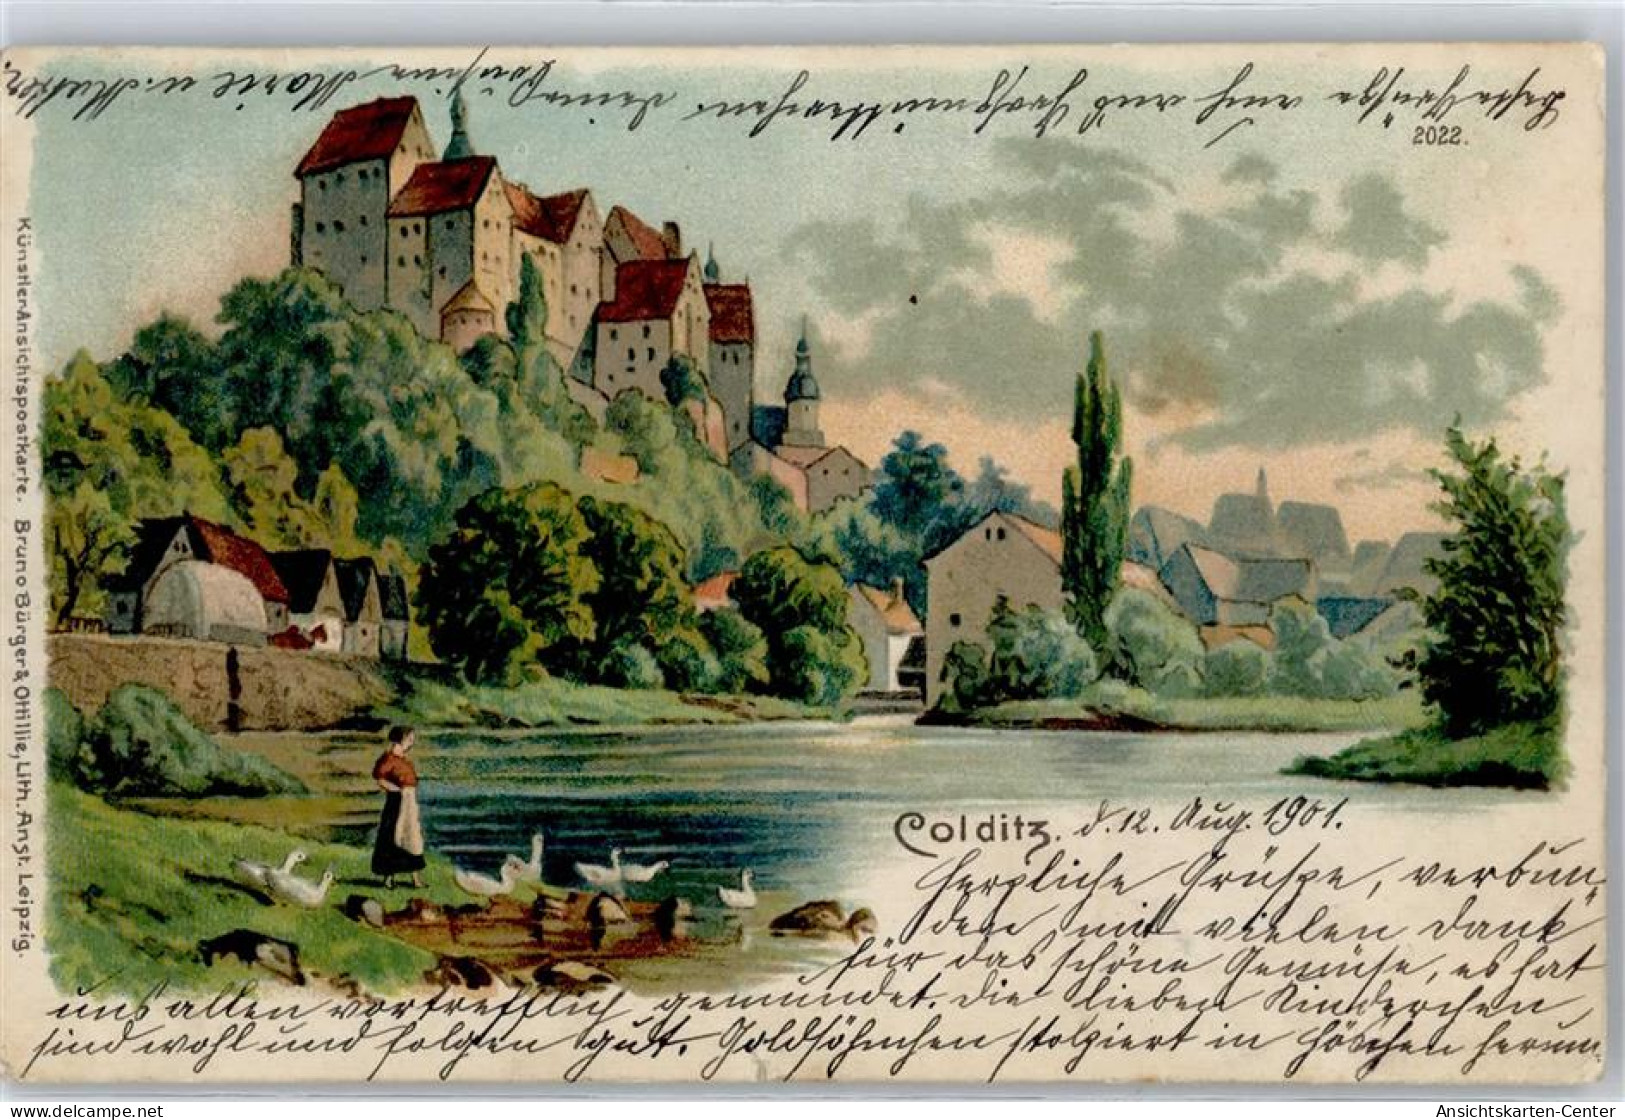 Beste Grüße auch aus Großmütterchen. deine Cousine Marie u. Mutter.
2022.
KünstlerAnsichtspostkarte. Bruno Bürger & Ottillie, Lith. Anst. Leipzig.
Colditz. d. 12. Aug. 1901.
Herzliche Grüße, verbun-
den mit vielen Dank
für das schöne Gemüse, es hat
uns allen vortrefflich gemundet. Die lieben Kinderchen
sind wohl und folgen gut. Goldsöhnchen stolziert in Höschen herum.
delcampe.net
Ansichtskarten-Center